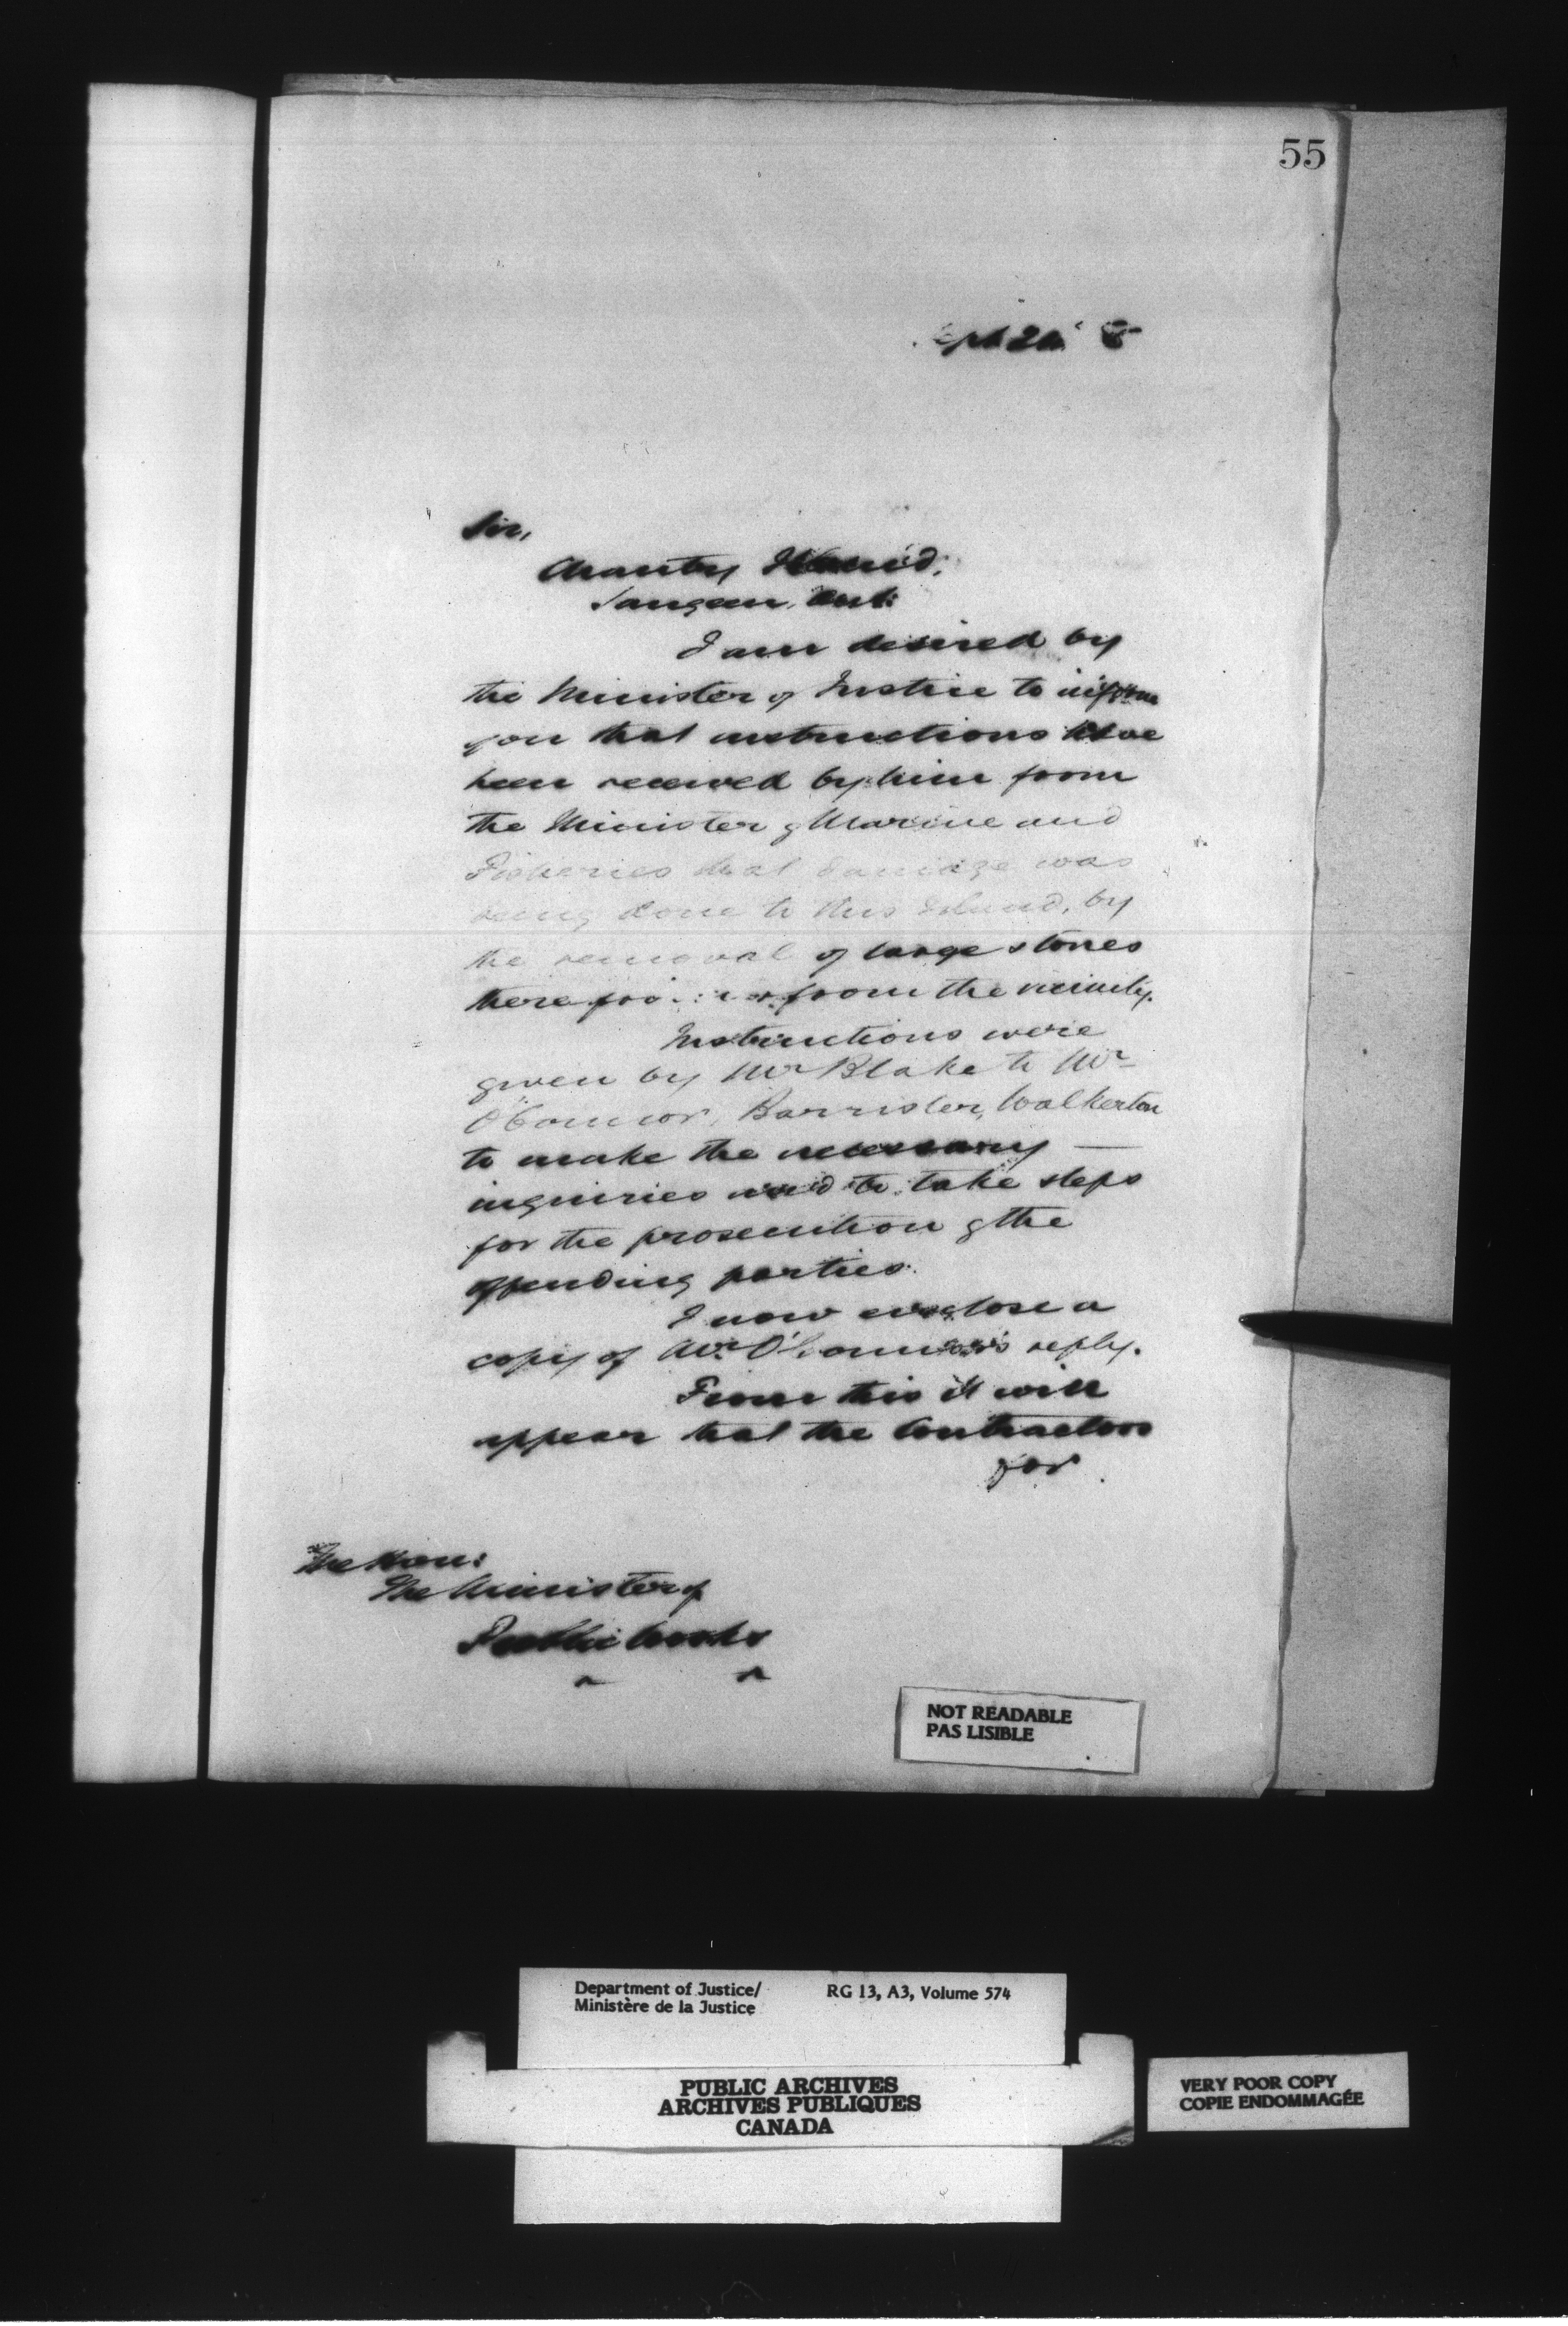 55
Sept 20 5
Sir,
Chantry Island,
Saugeen, Ont:
I am desired by
the Minister of Justice to inform
you that instructions have
been received by him from
the Minister of Marine and
Fisheries that damage was
being done to this Island, by
the removal of large stones
there from the vicinity.
Instructions were
given by Mr Blake to Mr
O'Connor, Barrister, Walkerton
to make the necessary —
inquiries and to take steps
for the prosecution of the
offending parties.
I now enclose a
copy of Mr. O'Connor's reply.
From this it will
appear that the Contractors
for
The Hon:
The Minister of
Public Works
NOT READABLE
PAS LISIBLE
Department of Justice/ RG 13, A3, Volume 574
Ministère de la Justice
PUBLIC ARCHIVES
ARCHIVES PUBLIQUES
CANADA
VERY POOR COPY
COPIE ENDOMMAGÉE